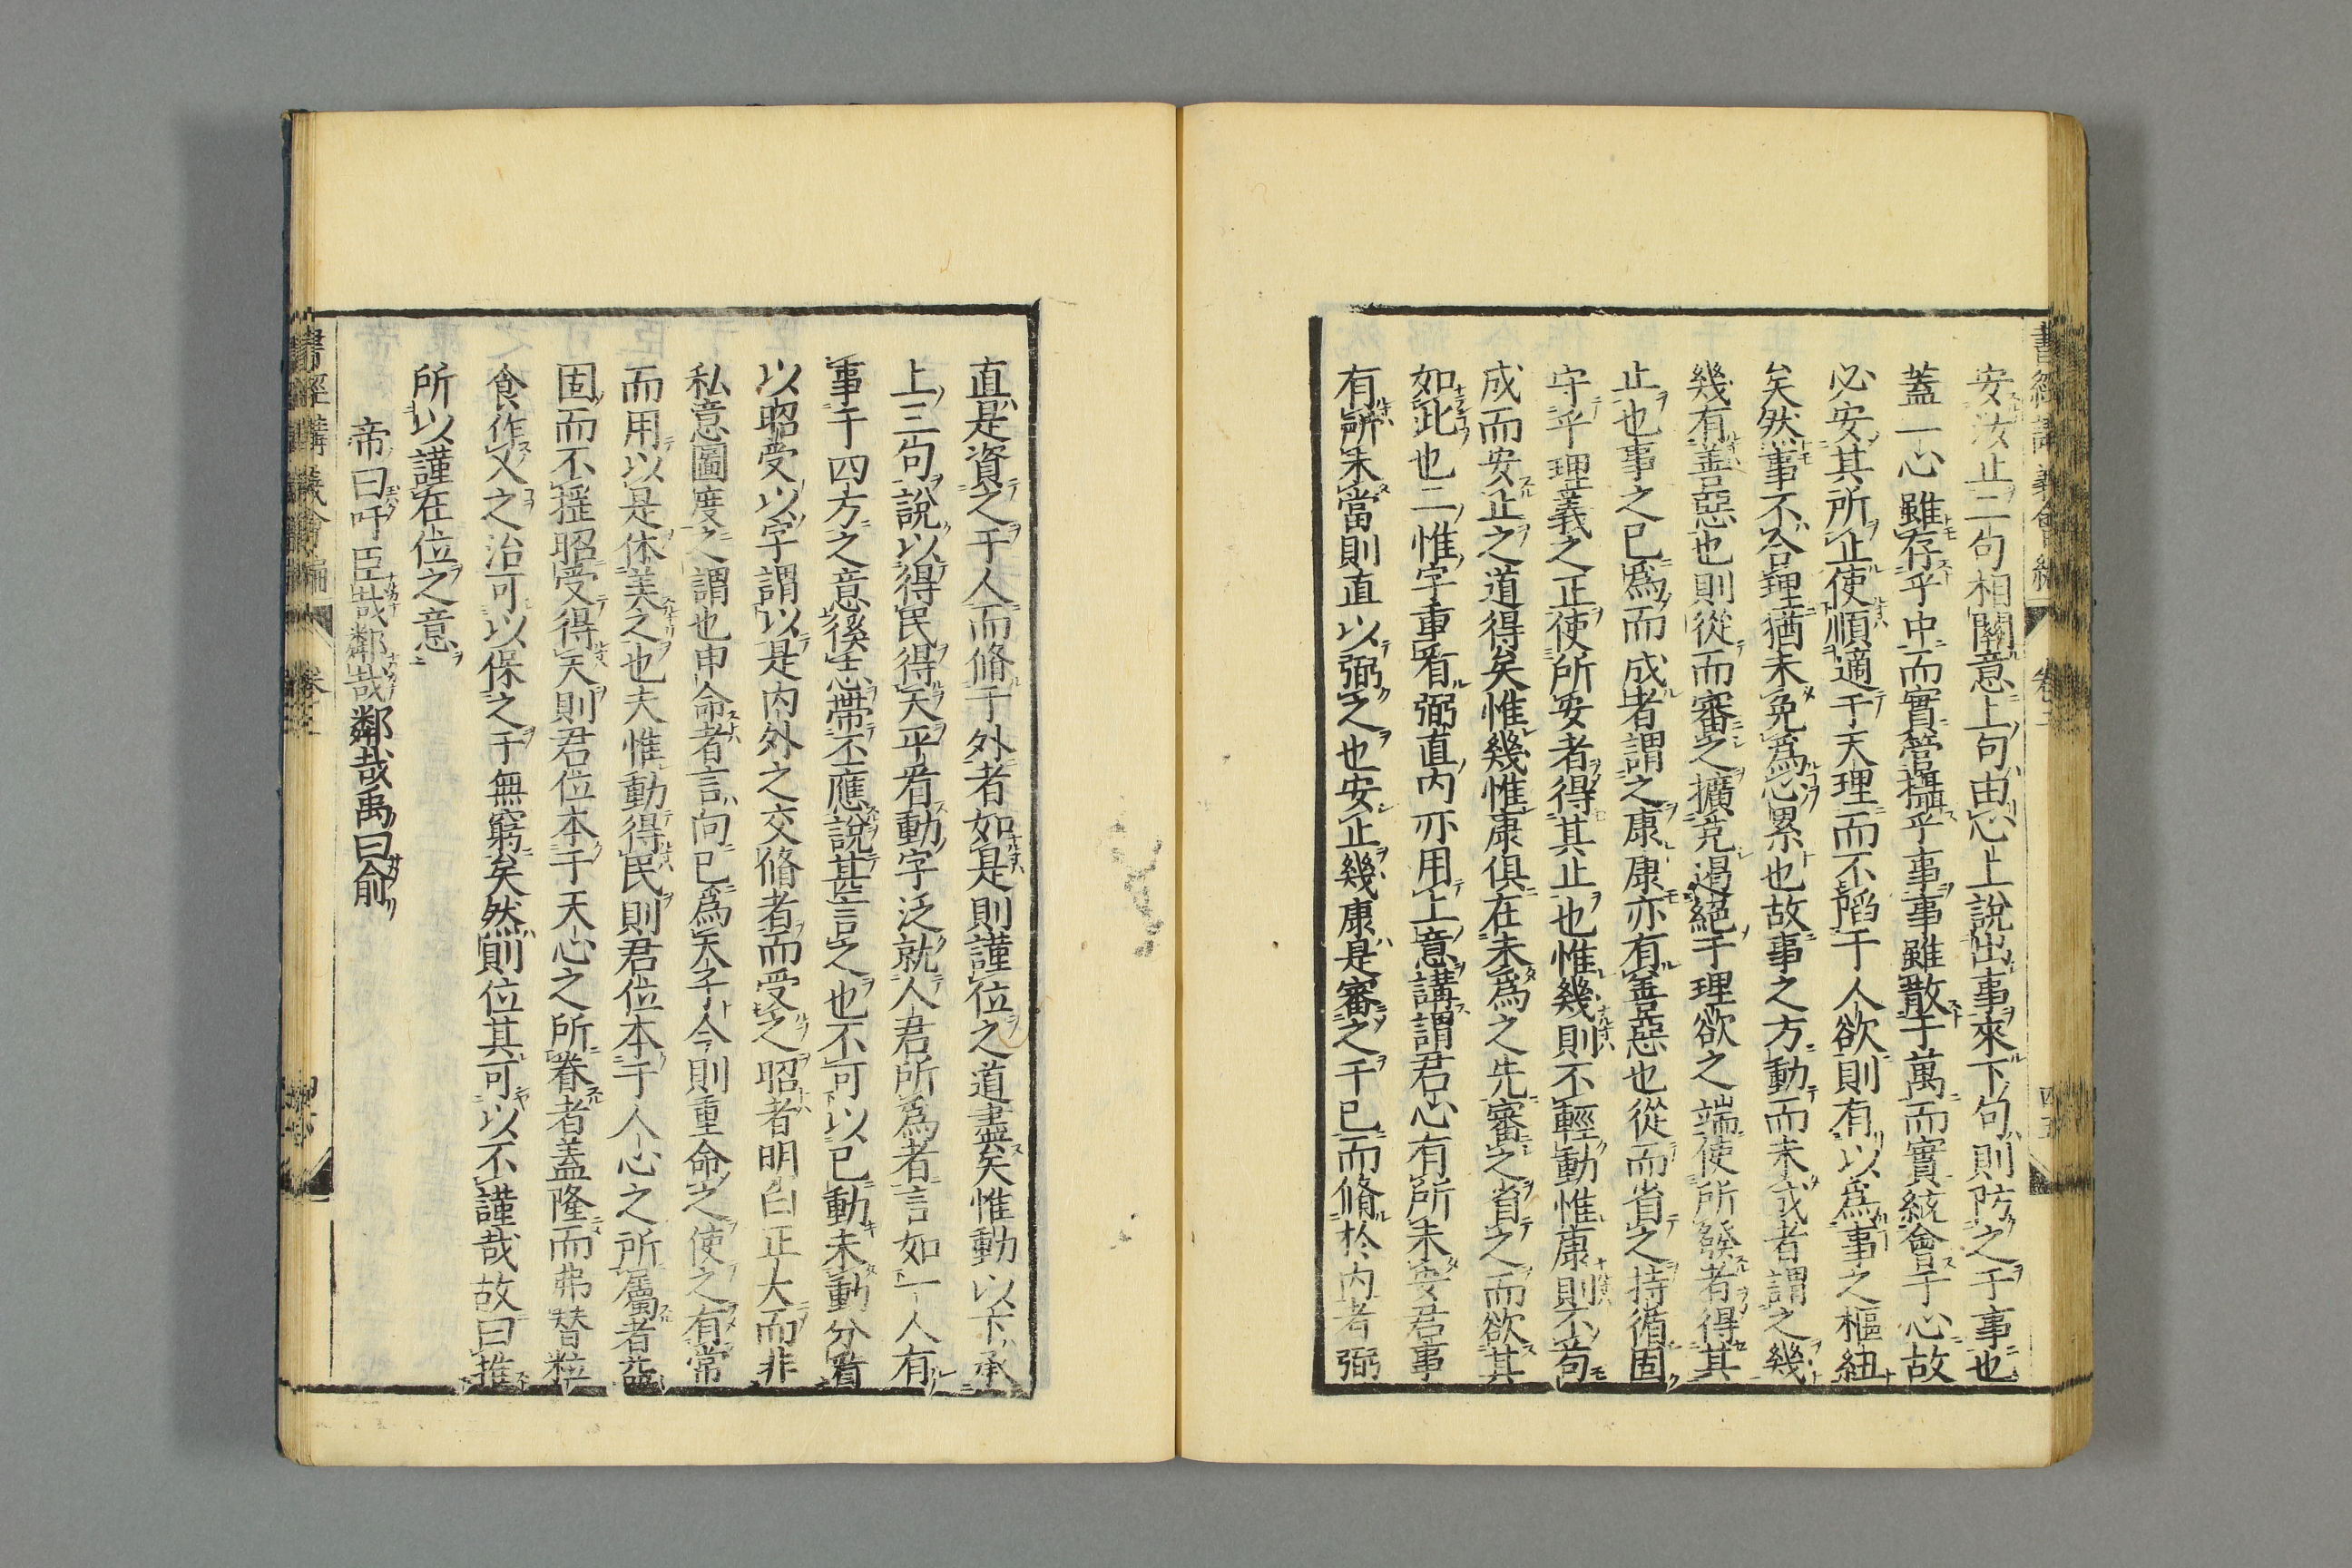 書經講義會編 卷三 四五
安汝止二句相關意上句由心上說出事來下句則防之于事也
蓋一心雖存乎中而實管攝乎事事雖散于萬而實統會于心故
必安其所止使順適于天理而不陷于人欲則有以爲事之樞紐
矣然事不合理猶未免爲心累也故事之方動而未或者謂之幾
幾有善惡也則從而審之擴充遏絕于理欲之端使所發者得其
止也事之已爲而成者謂之康康亦有善惡也從而省之持循固
守乎理義之正使所安者得其止也惟幾則不輕動惟康則不苟
成而安止之道得矣惟幾惟康俱在未爲之先審之省之而欲其
如此也二惟字重看弼直內亦用上意講謂君心有所未安君事
有所未當則直以弼之也安止幾康是審之于已而脩於內者弼
直是資之于人而脩于外者如是則謹位之道盡矣惟動以下承
上三句說以得民得天平看動字泛就人君所爲者言如一人有
事于四方之意徯志帶丕應說甚言之也不可以已動未動分看
以昭受以字謂以是內外之交脩者而受之昭者明白正大而非
私意圖度之謂也申命者言向已爲天子今則重命之使之有常
而用以是休美之也夫惟動得民則君位本于人心之所屬者益
固而不搖昭受得天則君位本于天心之所眷者益隆而弗替粒
食作乂之治可以保之于無窮矣然則位其可以不謹哉故曰推
所以謹在位之意
帝曰吁臣哉鄰哉鄰哉禹曰俞
書經講義會編 卷三